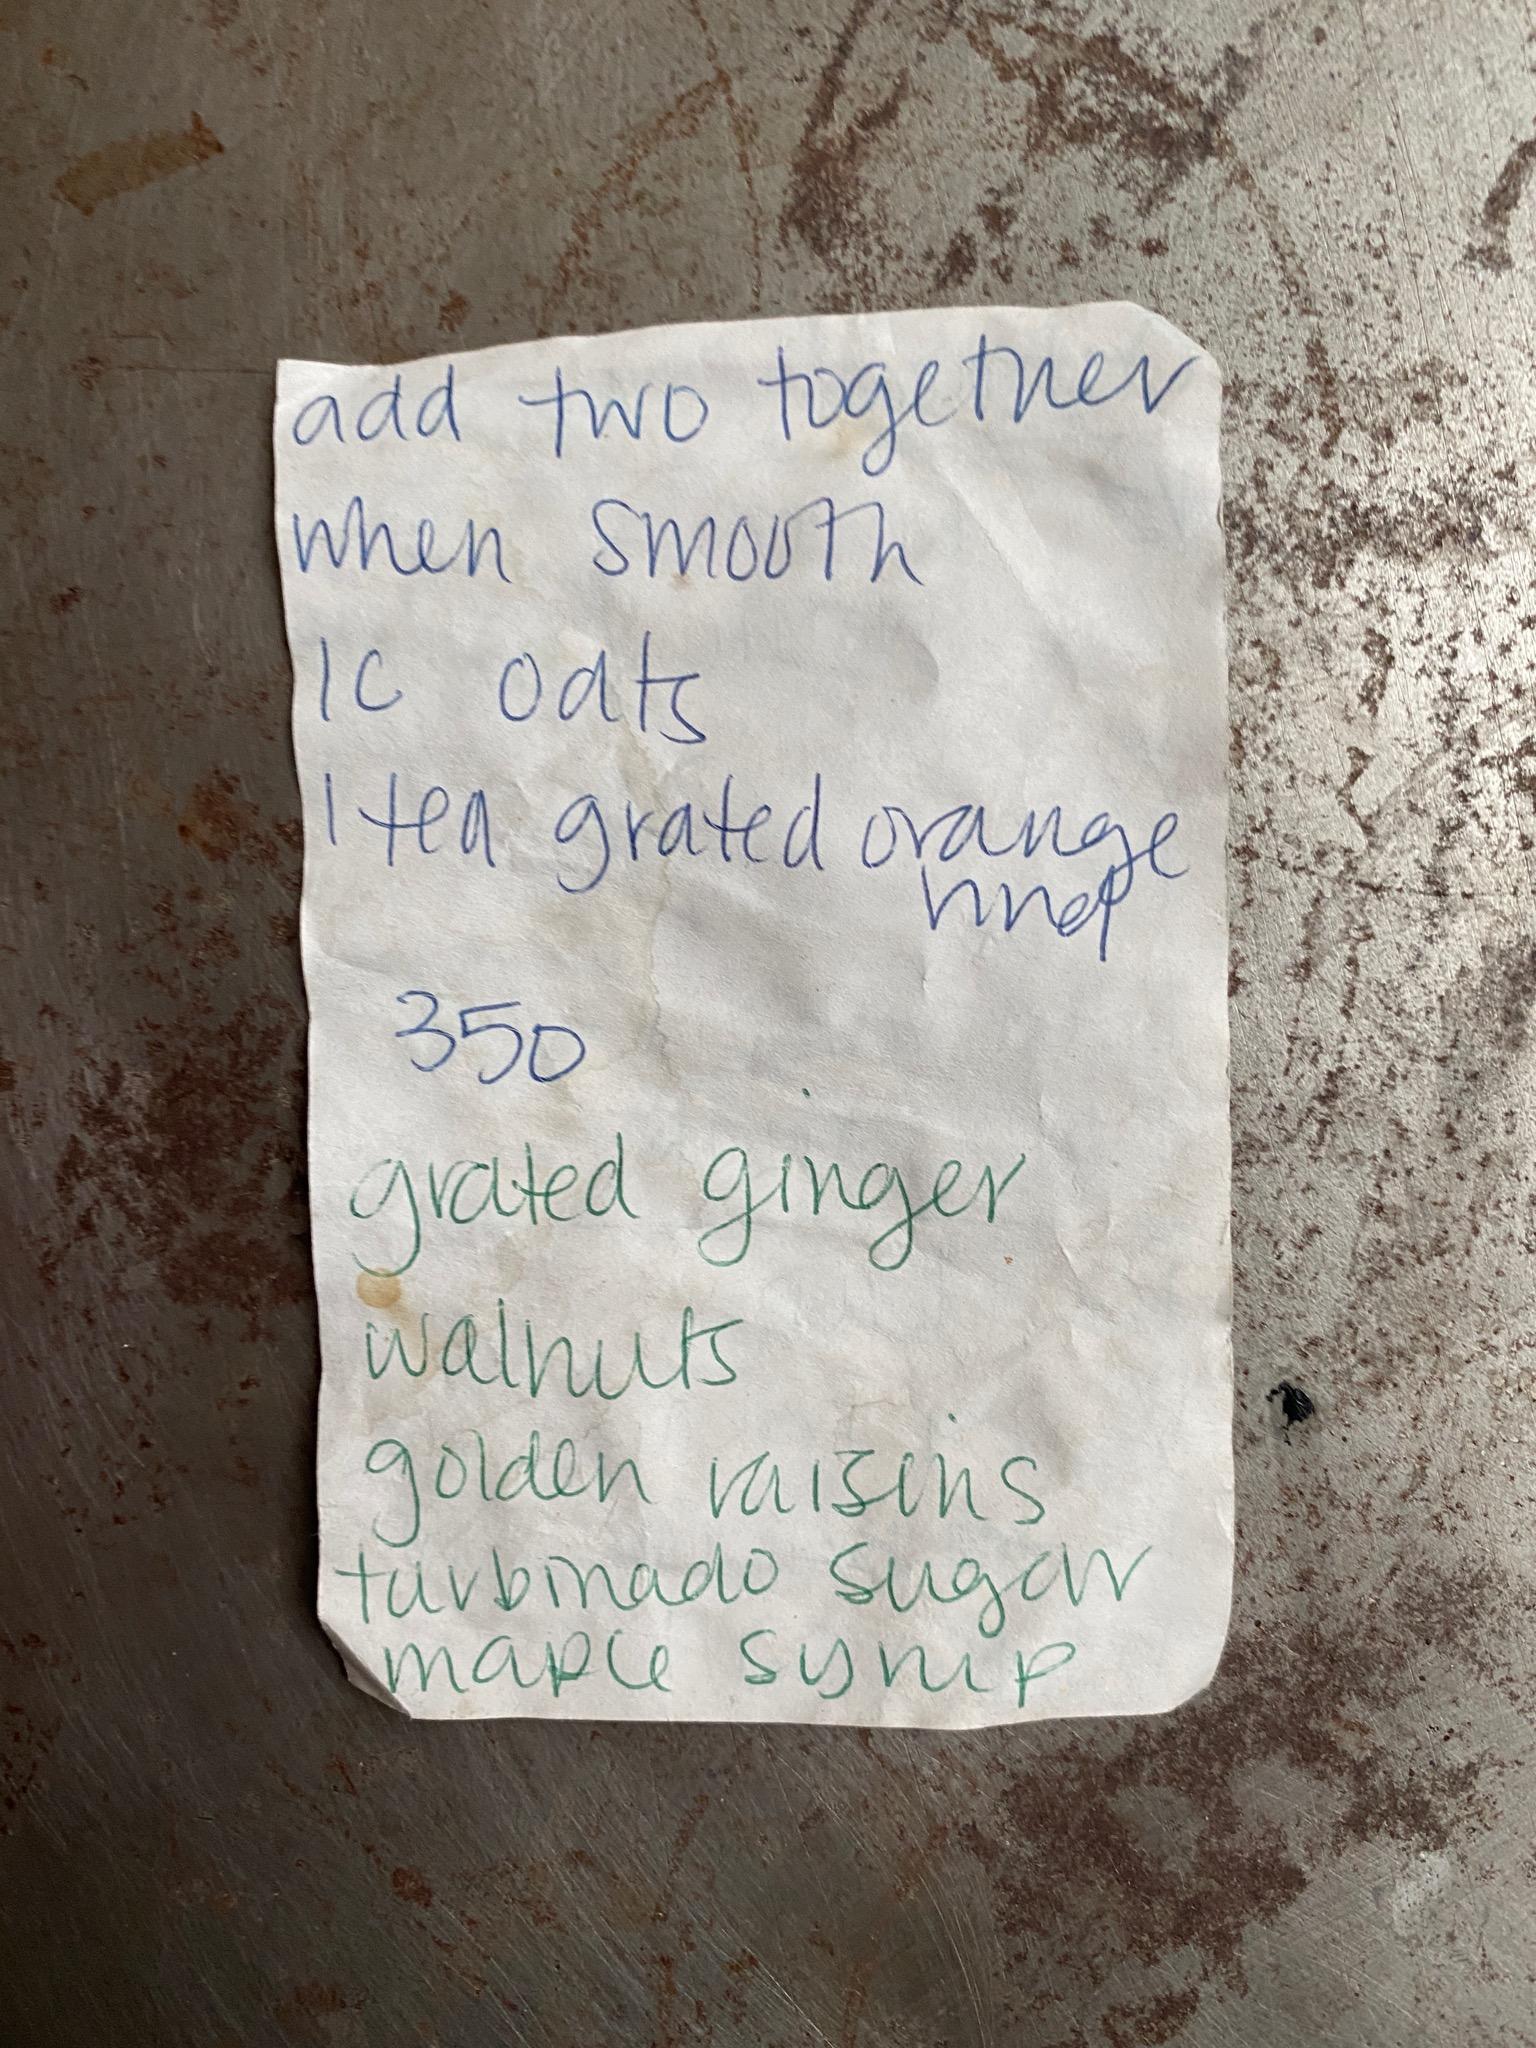 add two together
when smooth
1c oats
1 tea grated orange
rind
350
grated ginger
walnuts
golden raisins
turbinado sugar
maple syrup